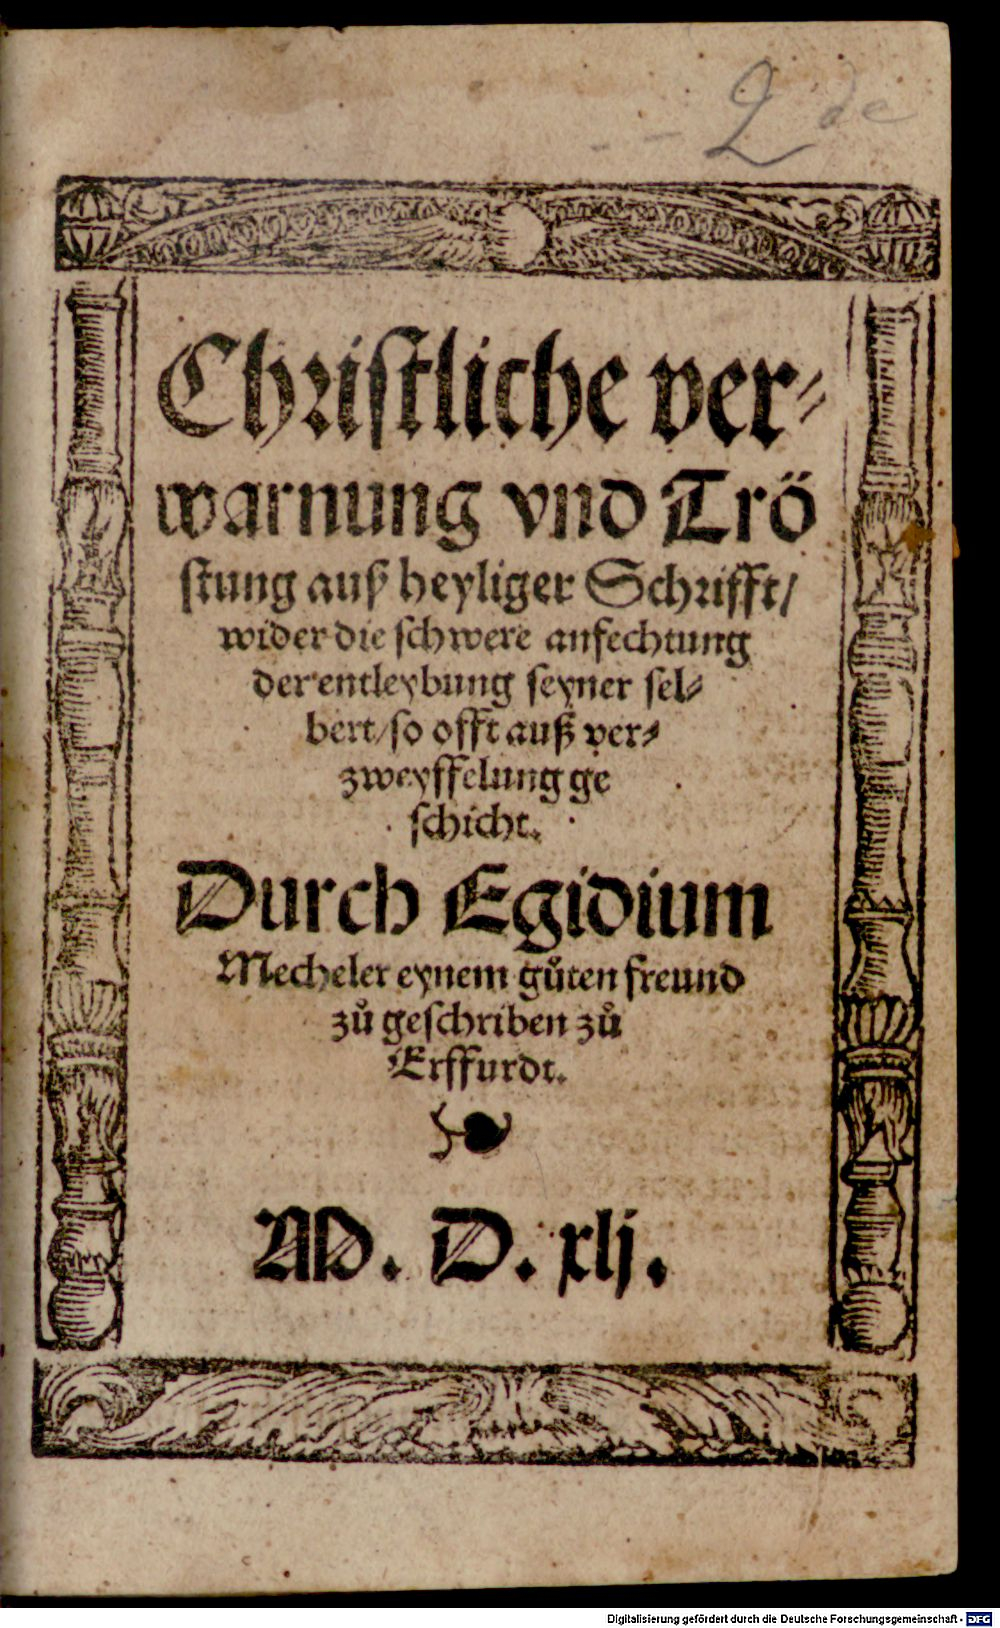 2 de
Christliche ver⸗
warnung vnd Trö
stung auß heyliger Schrifft/
wider die schwere anfechtung
der entleybung seyner sel⸗
bert/so offt auß ver⸗
zweyffelung ge
schicht.
Durch Egidium
Mecheler eynem gůten freund
zů geschriben zů
Erffurdt.
M. D. xlj.
Digitalisierung gefördert durch die Deutsche Forschungsgemeinschaft - DFG